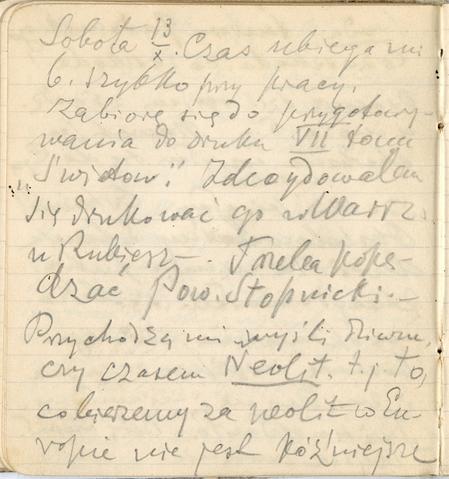 Sobota 13/X. Czas ubiega mi
b. szybko przy pracy.
Zabiorę się do przygotowy-
wania do druku VII tomu
„Światow." Zdecydowałem
się drukować go w Warsz.
u Rubiesz –. Trzeba popę-
dzać Pow. Stopnicki. –
Przychodzą mi myśli dziwne,
czy czasem Neolit. t. j. to,
co bierzemy za neolit w Eu-
ropie nie jest późniejsze